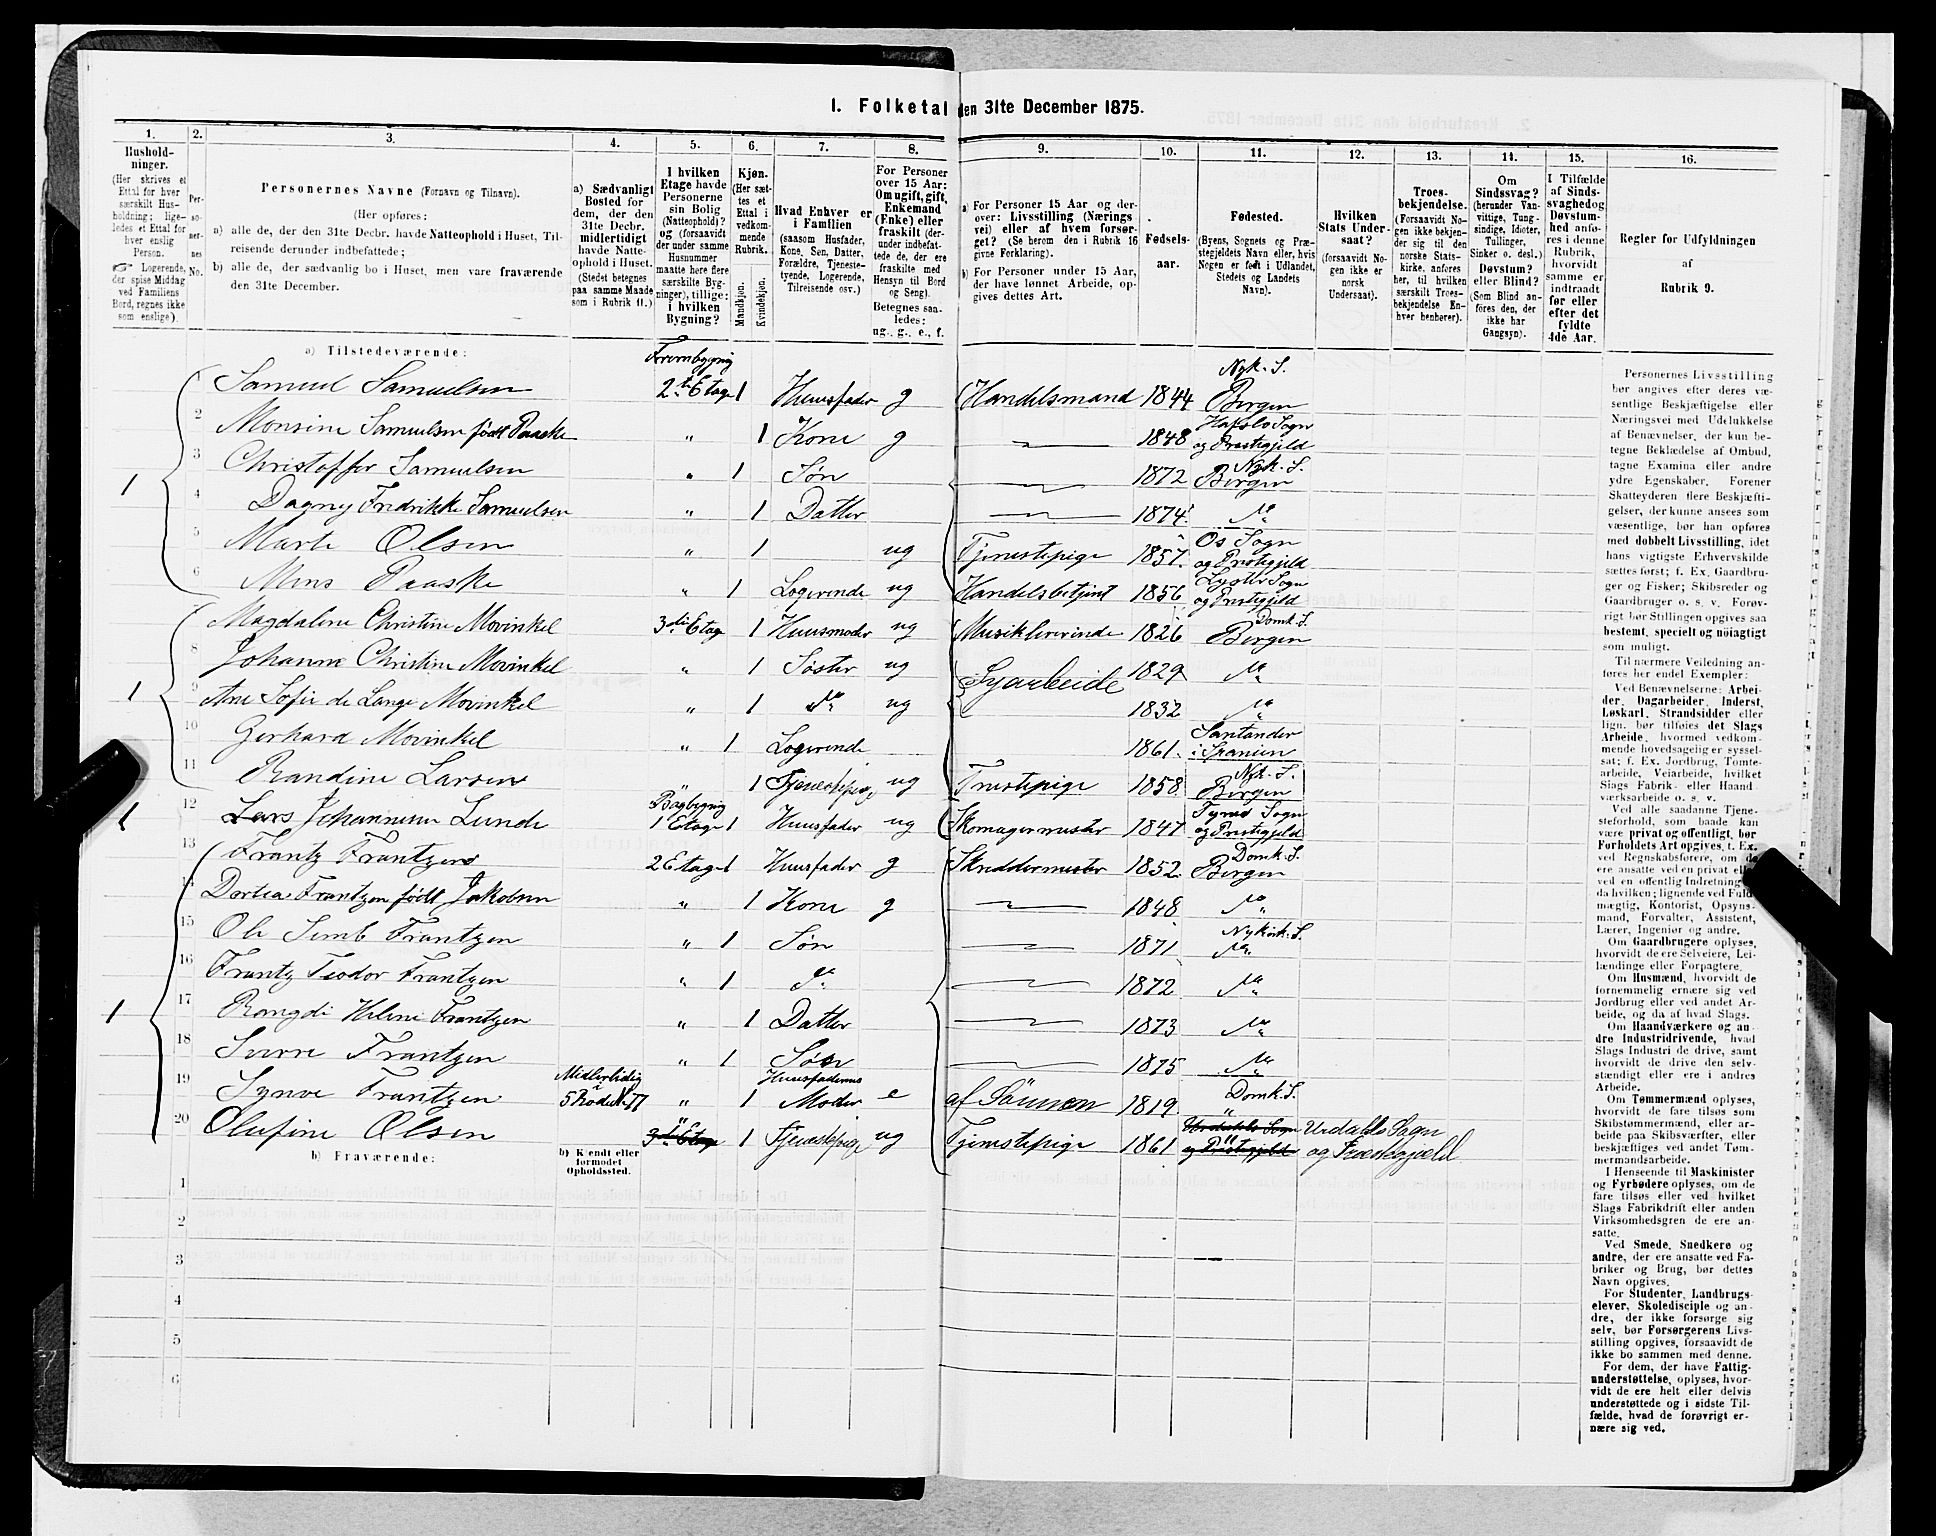 1. Folketal den 31te December 1875.
1. 2. 3. 4. 5. 6. 7. 8. 9. 10. 11. 12. 13. 14. 15. 16.
Hushold-
ninger.
(Her skrives et
Ettal for hver
særskilt Hus-
holdning; lige-
ledes et Ettal for
hver enslig
Person.
☞ Logerende,
der spise Middag
ved Familiens
Bord, regnes ikke
som enslige).
Per-
so-
ner-
nes
No.
Personernes Navne (Fornavn og Tilnavn).
(Her opføres:
a) alle de, der den 31te Decbr. havde Natteophold i Huset, Til-
reisende derunder indbefattede;
b) alle de, der sædvanlig bo i Huset, men vare fraværende
den 31te December.
a) Sædvanligt
Bosted for
dem, der den
31te Decbr.
midlertidigt
havde Natte-
ophold i Huset.
(Stedet betegnes
paa samme Maade
som i Rubrik 11.)
I hvilken
Etage havde
Personerne
sin Bolig
(Natteophold)?
og (forsaavidt
der under samme
Husnummer
maatte here flere
særskilte Byg-
ninger), tillige:
i hvilken
Bygning?
Kjøn.
(Her sæt-
tes et
Ettal i
vedkom-
mende
Rubrik.
Mandkjøn.
Kvindekjøn.
Hvad Enhver er
i Familien
(saasom Husfader,
Kone, Søn, Datter,
Forældre, Tjeneste-
tyende, Logerende,
Tilreisende osv.)
For Personer
over 15 Aar:
Om ugift, gift,
Enkemand
(Enke) eller
fraskilt (der-
under indbefat-
tede de, der ere
fraskilte med
Hensyn til Bord
og Seng).
Betegnes saa-
ledes:
ug., g., e., f.
a) For Personer 15 Aar og der-
over: Livsstilling (Nærings
vei) eller af hvem forsør-
get? (Se herom den i Rubrik 16
givne Forklaring).
b) For Personer under 15 Aar,
der have lønnet Arbeide, op-
gives dettes Art.
Fødsels-
aar.
Fødested.
(Byens, Sognets og Præ-
stegjeldets Navn eller, hvis
Nogen er født i Udlandet,
Stedets og Landets
Navn).
Hvilken
Stats Under-
saat?
(forsaavidt No-
gen ikke er
norsk
Undersaat).
Troes-
bekjendelse.
(Forsaavidt No-
gen ikke bekjen-
der sig til den
norske Stats-
kirke, anføres
her, til hvilken
særskilt Troes-
bekjendelse En-
hver henhører).
Om
Sindssvag?
(herunder Van-
vittige, Tung-
sindige, Idioter,
Tullinger,
Sinker o. desl.)
Døvstum?
eller Blind?
(Som Blind an-
føres den, der
ikke har
Gangsyn).
I Tilfælde
af Sinds-
svaghed og
Døvstum-
hed anfø-
res i denne
Rubrik,
hvorvidt
samme er
indtraadt
før eller
efter det
fyldte
4de Aar.
Regler for Udfyldningen
af
Rubrik 9.
a) Tilstedeværende:
Frembygnig Nyk. S.
1 Samuel Samuelsen 2den Etage 1 Huusfader g Handelsmand 1844 Bergen
2 Monsine Samuelsen født Paaske " 1 Kone g 1848 Hafslo Sogn og Prestegjeld
1 3 Christoffer Samuelsen " 1 Søn 1872 Nyk. S. Bergen
4 Dagny Fredrikke Samuelsen " 1 Datter 1874 do
5 Marte Olsen " 1 ug Tjenestepige 1857 Os Sogn og Prestegjeld
6 Mons Paaske " 1 Logerende ug Handelsbetjent 1856 Lyster Sogn og Prestegjeld
Magdalene Christine Mowinkel 3die Etage 1 Huusmoder ug Musiklererinde 1826 Domk. S. Bergen
8 Johanne Christine Mowinkel " 1 Søster ug Syarbeide 1829 do
1 9 Ane Sofie de Lange Mowinkel " 1 do ug 1832 do
10 Gerhard Mowinkel " 1 Logerende 1861 Santander i Spanien
11 Randine Larsen " 1 Tjenestepige ug Tjnestepige 1858 Nyk. S. Bergen
1 12 Lars Johannesen Lunde Bagbygnig 1 Etage 1 Huusfader ug Skomagermester 1847 Sogn og Prestegjeld
13 Frantz Frantzen 2 Etage 1 Huusfader g Skreddermester 1852 Domk. S. Bergen
14 Dortea Frantzen født Jakobsen " 1 Kone g 1848 do
15 Ole Frantzen " 1 Søn 1871 Nykirk. S. do
16 Frantz Teodor Frantzen " 1 do 1872 do
1 17 Rangdi Helene Frantzen " 1 Datter 1873 do
18 Sverre Frantzen " 1 Søn 1875 do
19 Synve Frantzen Midlertidig 5 Rode N 77 " 1 Huusfaderens Moder e af Sönnen 1819 Domk. S. "
20 Olufine Olsen 3die Etage " 1 Tjenestepige ug Tjenestepige 1861 og Prestegjeld Urdahls Sogn og Præstegjæld
b) Fraværende:
b) Kjendt eller
formodet
Opholdssted.
1
2
3
4
5
6
Personernes Livsstilling
bør angives efter deres væ-
sentlige Beskjæftigelse eller
Næringsvei med Udelukkelse
af Benævnelser, der kun be-
tegne Beklædelse af Ombud,
tagne Examina eller andre
ydre Egenskaber. Forener
Skatteyderen flere Beskjæfti-
gelser, der kunne ansees som
væsentlige, bør han opføres
med dobbelt Livsstilling, idet
hans vigtigste Erhvervskilde
sættes først; f. Ex. Gaardbru-
ger og Fisker; Skibsreder og
Gaardbruger o. s. v. Forøv-
rigt bør Stillingen opgives saa
bestemt, specielt og nøiagtigt
som muligt.
Til nærmere Veiledning an-
føres her endel Exempler:
Ved Benævnelserne: Arbei-
der, Dagarbeider, Inderst,
Løskarl, Strandsidder eller
lign. bør tilføies det Slags
Arbeide, hvormed vedkom-
mende hovedsagelig er syssel-
sat; f. Ex. Jordbrug, Tomte-
arbeide, Veiarbeide, hvilket
Slags Fabrik- eller Haand
værksarbeide o. s. v.
Ved alle saadanne Tjene-
steforhold, som baade kan
være privat og offentligt, bør
Forholdets Art opgives, t. Ex.
ved Regnskabsførere, om de
ere ansatte ved en privat eller
ved en offentlig Indretning
da hvilken; lignende ved Fuld-
mægtig, Kontorist, Opsyns-
mand, Forvalter, Assistent,
Lærer, Ingeniør og andre.
Om Gaardbrugere oplyses,
hvorvidt de ere Selveiere, Lei-
lændinge eller Forpagtere.
Om Husmænd, hvorvidt de
fornemmelig ernære sig ved
Jordbrug eller ved andet Ar-
beide, og da af hvad Slags.
Om Haandværkere og an-
dre Industridrivende, hvad
Slags Industri de drive, samt
hvorvidt de drive den selv-
stændigt eller ere i andres
Arbeide.
Om Tømmermænd oplyses,
hvorvidt de fare tilsøs som
Skibstømmermænd, eller ar-
beide paa Skibsværfter, eller
beskjæftiges ved andet Tøm-
mermandsarbeide.
I Henseende til Maskinister
og Fyrbødere oplyses, om de
fare tilsøs eller ved hvilket
Slags Fabrikdrift eller anden
Virksomhedsgren de ere an-
satte.
Ved Smede, Snedkere og
andre, der ere ansatte ved Fa-
briker og Brug, bør dettes
Navn opgives.
For Studenter, Landbrugs-
elever, Skoledisciple og an-
dre, der ikke forsørge sig
selv, bør Forsørgerens Livs-
stilling opgives, forsaavidt de
ikke bo sammen med denne.
For dem, der have Fattig-
understøttelse, oplyses, hvor-
vidt de ere helt eller delvis
understøttede og i sidste Til-
fælde, hvad de forøvrigt er-
nære sig ved.